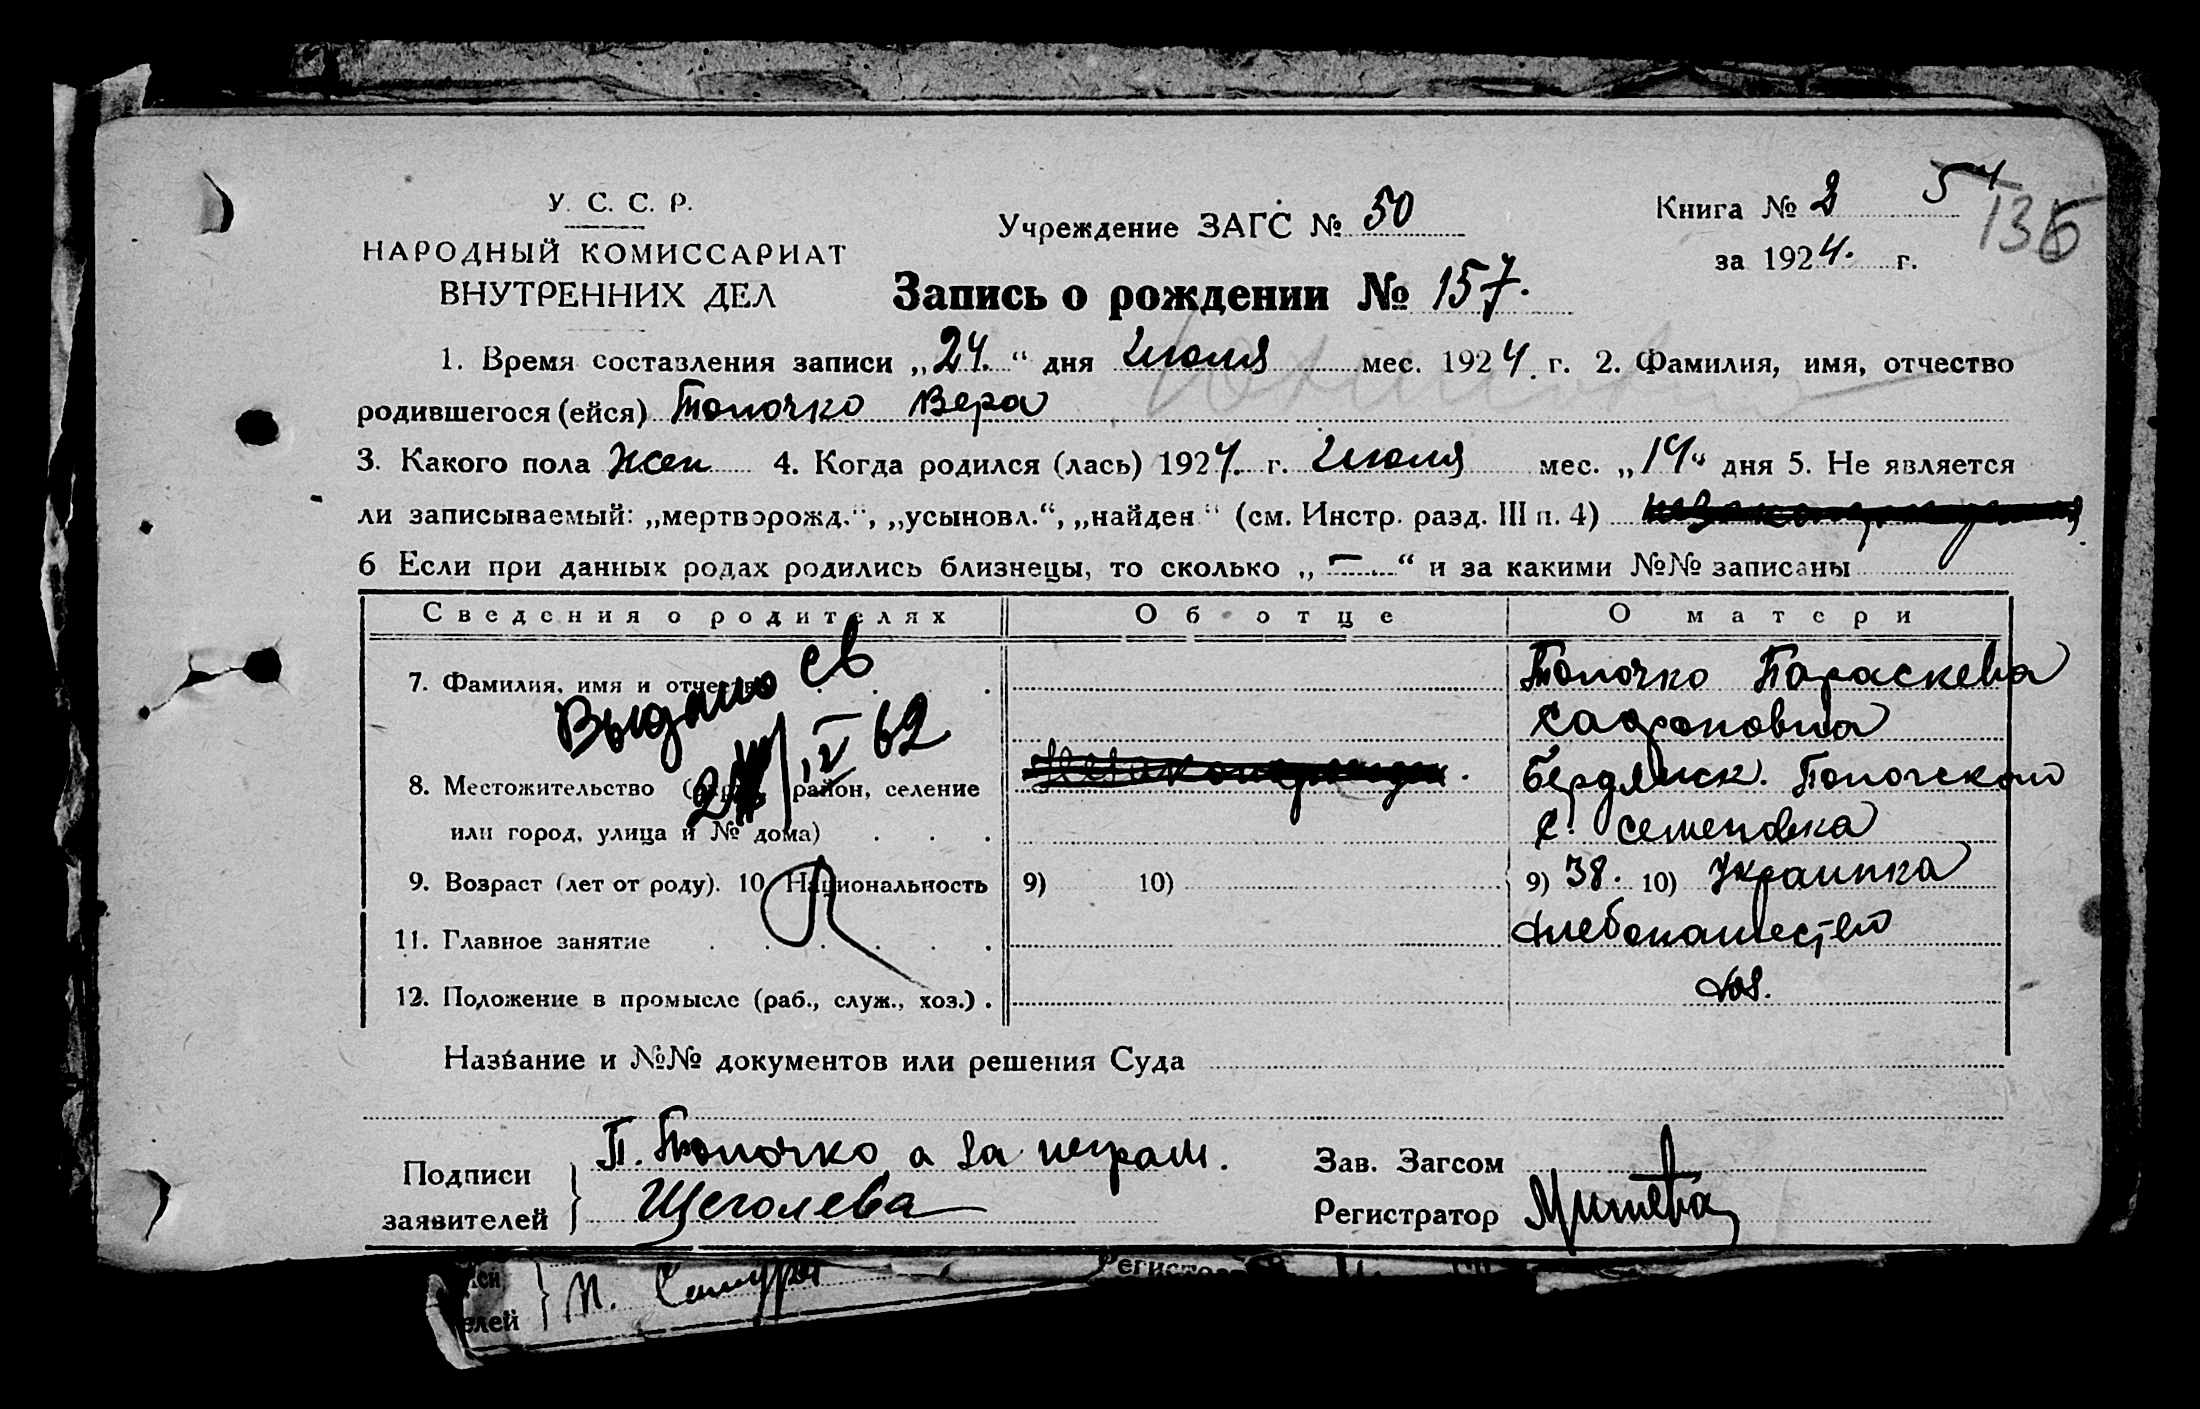 У. С. С. Р.
НАРОДНЫЙ КОМИССАРИАТ
ВНУТРЕННИХ ДЕЛ
Учреждение ЗАГС № 50
Книга № 2 54
135
за 1924. г.
Запись о рождении № 157.
1. Время составления записи „24.“ дня Июля мес. 1924 г. 2. Фамилия, имя, отчество
родившегося (ейся) Топочко Вера
3. Какого пола жен 4. Когда родился (лась) 1924. г. Июля мес. „14“ дня 5. Не является
ли записываемый: „мертворожд.“, „усыновл.“, „найден“ (см. Инстр. разд. III п. 4)
6 Если при данных родах родились близнецы, то сколько „—“ и за какими №№ записаны
Сведения о родителях Об отце О матери
7. Фамилия, имя и отчество Топочко Параскева
Сафоновна
Выдано св
V 62
8. Местожительство район, селение Бердянск.
или город, улица и № дома) с. Семеновка
9. Возраст (лет от роду). 10. Национальность 9) 10) 9) 38. 10) Украинка
11. Главное занятие хлебопашество
12. Положение в промысле (раб., служ., хоз.) хоз.
Название и №№ документов или решения Суда
Подписи
заявителей
П. Топочко а за неграм.
Щеголева
Зав. Загсом
Регистратор
елей